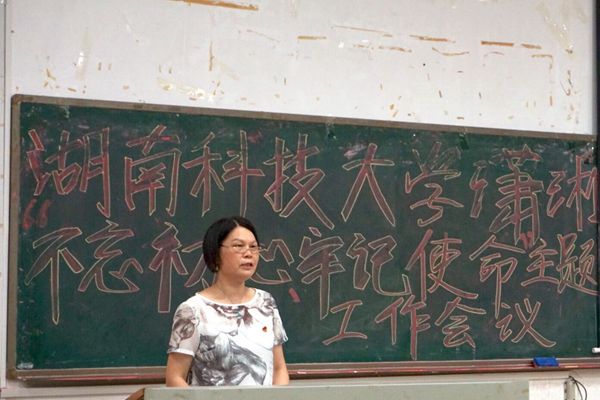 湖南科技大学潇湘
“不忘初心、牢记使命”主题
工作会议